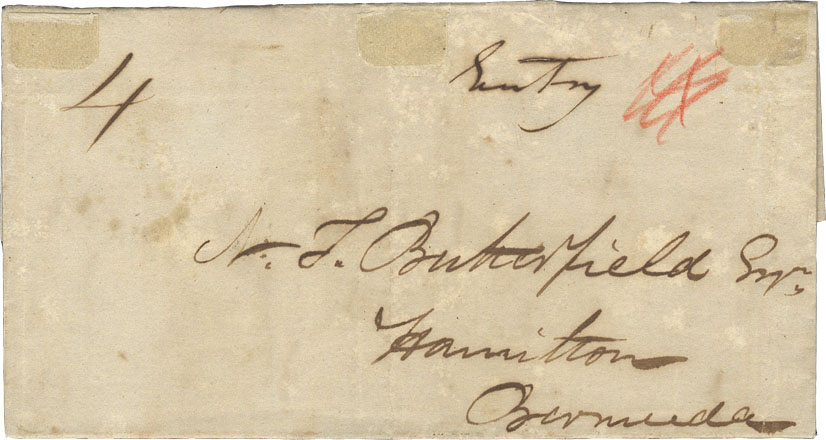 4 Entry
N. T. Butterfield Esqr
Hamilton
Bermuda